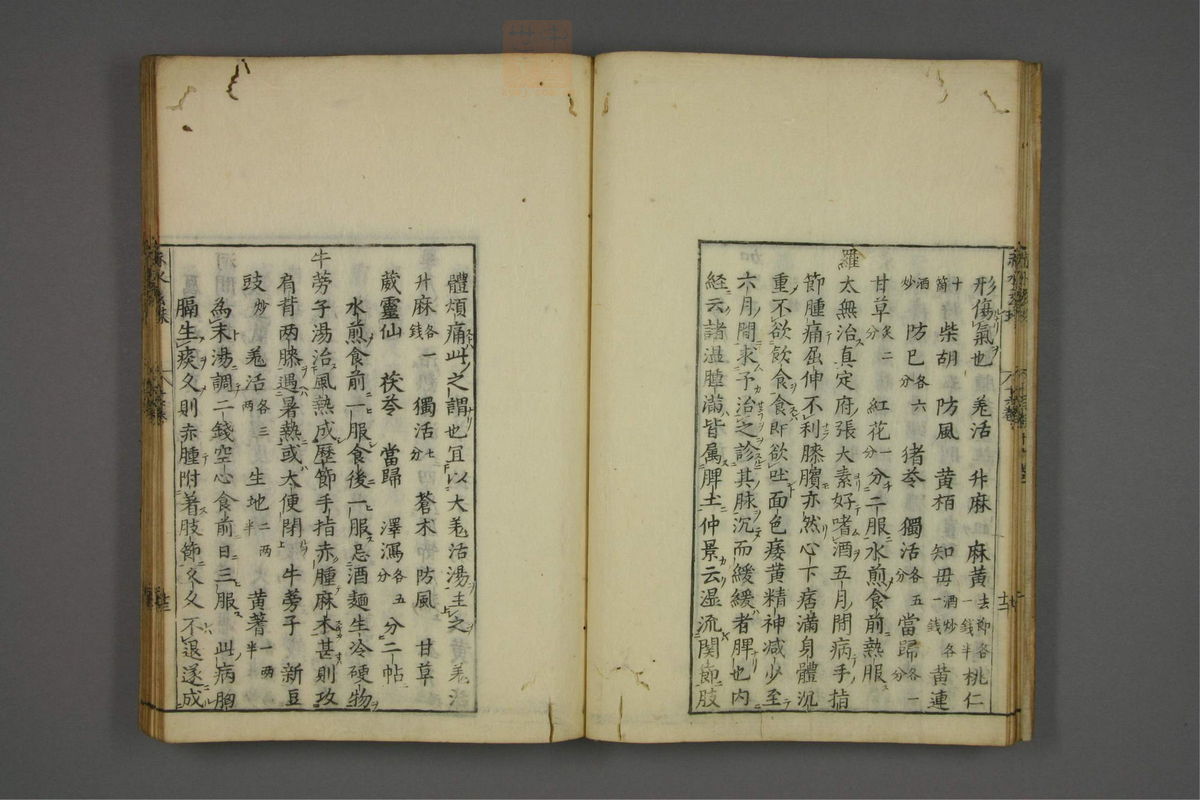 形傷氣也　羗活　升麻　麻黄去節各一錢半　桃仁
十箇　柴胡　防風　黄栢　知母酒炒各一錢　黄連
酒炒　防已各六分　猪苓　獨活各五分　當歸各一分
甘草炙二分　紅花一分　分二服水煎食前熱服
羅太無治真定府張大素好嗜酒五月間病手指
節腫痛屈伸不利膝臏亦然心下痞滿身體沉
重不欲飲食食即欲吐面色痿黄精神减少至
六月間求予治之診其脉沉而緩緩者脾也内
経云諸濕腫滿皆属脾土仲景云湿流関節肢
體煩痛此之謂也宜以大羗活湯主之　羗活
升麻各一錢　獨活七分　蒼木　防風　甘草
葳靈仙　茯苓　當歸　澤瀉各五分　分二帖
水煎食前一服食後一服忌酒麵生冷硬物
牛蒡子湯治風熱成歴節手指赤腫麻木甚則攻
肩背两膝遇暑熱或大便閉　牛蒡子　新豆
豉炒　羗活各三两　生地二两半　黄蓍一两半
為末湯調二錢空心食前日三服　此病胸
膈生痰久則赤腫附著肢節久久不退遂成